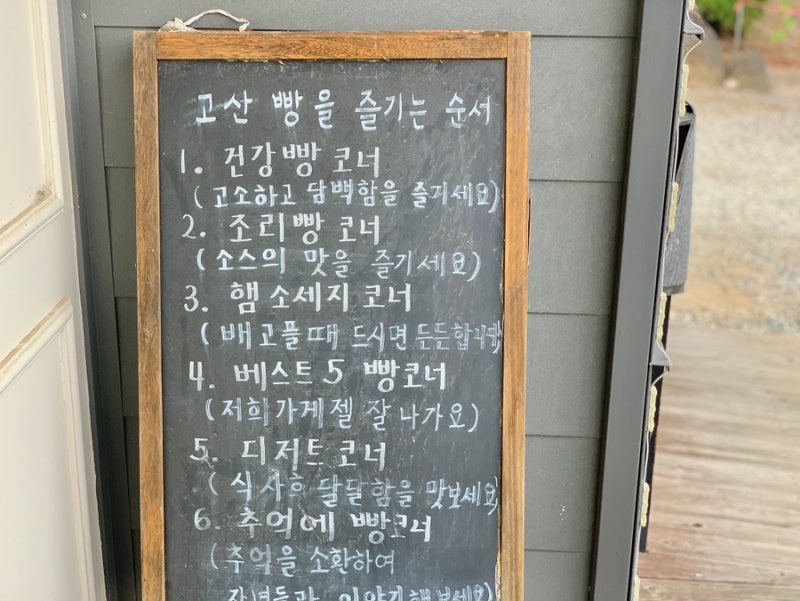 고산 빵을 즐기는 순서
1. 건강빵 코너
(고소하고 담백함을 즐기세요)
2. 조리빵 코너
(소스의 맛을 즐기세요)
3. 햄 소세지 코너
(배고플때 드시면 든든합니다)
4. 베스트5 빵코너
(저희가게젤 잘 나가요)
5. 디저트 코너
(식사후 달달함을 맛보세요)
6. 추억에 빵코너
(추억을 소환하여
자녀들과 이야기해보세요)